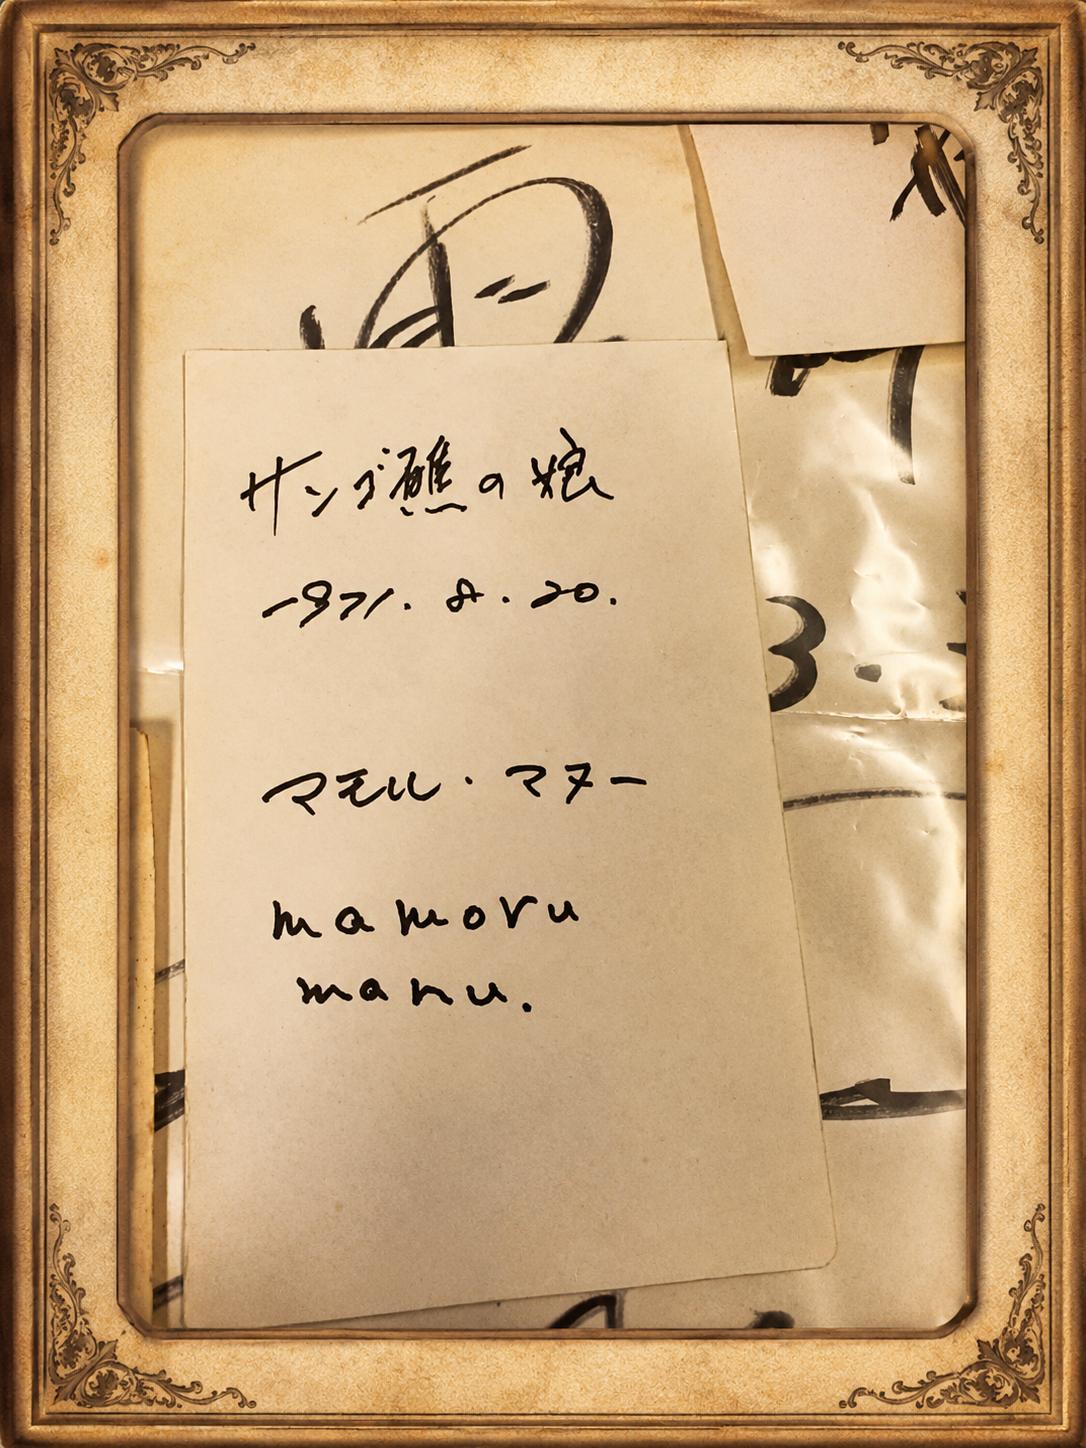 サンゴ礁の娘
1971. 8. 20.
マモル・マヌー
mamoru
manu.
3.